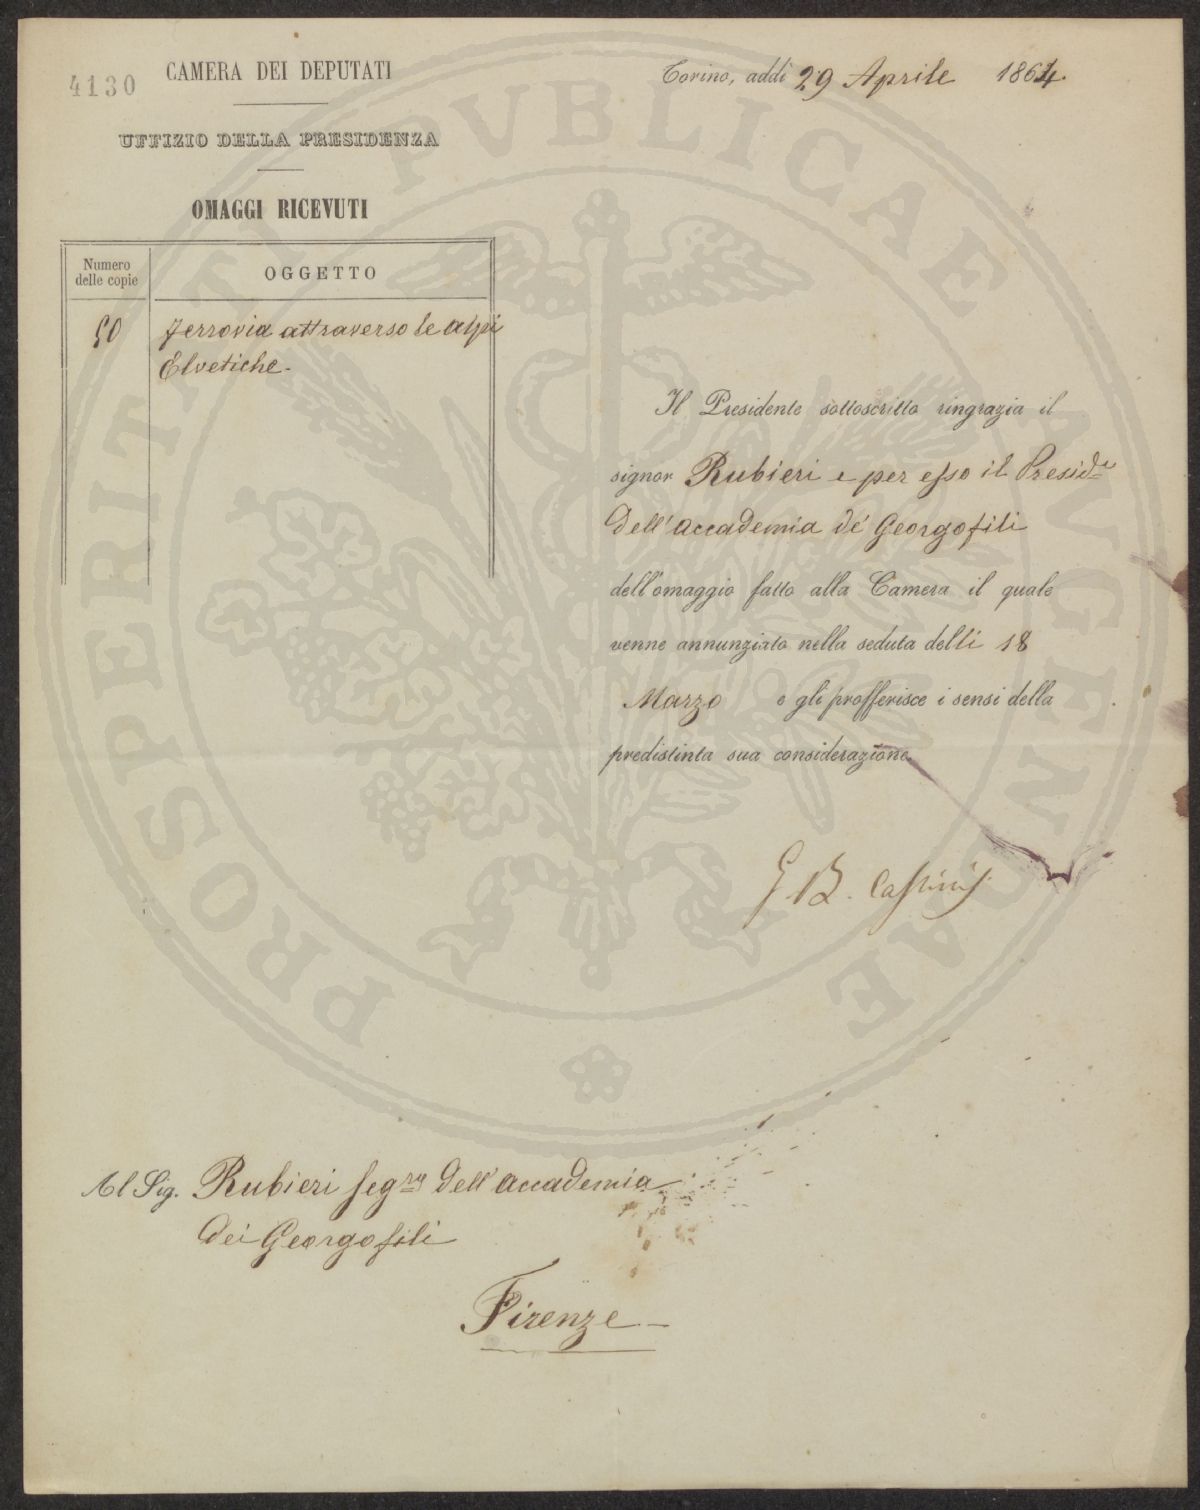 4130
CAMERA DEI DEPUTATI
UFFIZIO DELLA PRESIDENZA
OMAGGI RICEVUTI
Numero delle copie
OGGETTO
50
Ferrovia attraverso le alpi
Elvetiche.
Torino, addì 29 Aprile 1864.
Il Presidente sottoscritto ringrazia il
signor Rubieri e per esso il Presid.te
Dell'accademia de' Georgofili
dell'omaggio fatto alla Camera il quale
venne annunziato nella seduta delli 18
Marzo e gli profferisce i sensi della
predistinta sua considerazione.
G B. Cassinis
Al Sig. Rubieri Seg.rio Dell'accademia
dei Georgofili
Firenze
PROSPERITATI PVBLICAE AVGENDAE